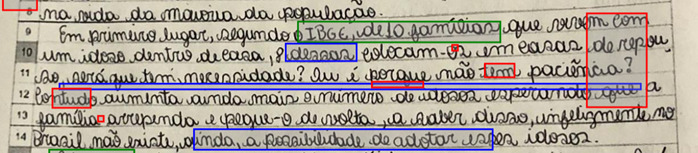 8 na vida da maioria da população.
9 Em primeiro lugar, segundo o IBGE, de 10 famílias, que vivem com
10 um idoso dentro de casa, 8 dessas colocam-os em casas de repou
11 so, será que tem necessidade? Ou é porque não tem paciência?
12 Contudo aumenta ainda mais o número de idosos esperando que a
13 família arrependa e pegue-o de volta, a saber disso, infelizmente no
14 Brasil, não existe, ainda, a possibilidade de adotar esses idosos.